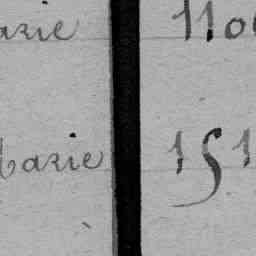 arie 110
Marie 151